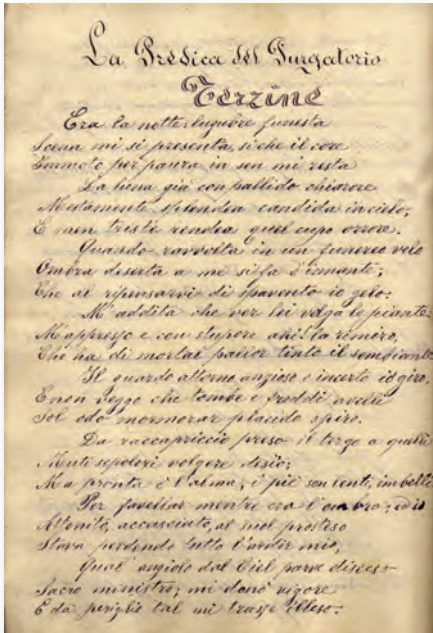 La Predica del Purgatorio
Terzine
Era la notte: lugubre funesta
Scena mi si presenta, sì che il core
Immoto per paura in sen mi resta
La luna già con pallido chiarore
Mestamente splendea candida in cielo,
E men triste rendea quel cupo orrore.
Quando ravvolta in un funereo velo
Ombra diserta a me si fa d'innante;
Che al ripensarvi di spavento io gelo:
M'addita che ver lei volga le piante:
M'appresso e con stupore ahi! la rimiro,
Che ha di mortal pallor tinto il sembiante
Il guardo attorno anzioso e incerto io giro,
E non veggo che tombe e freddi avelli
Sol odo mormorar placido spiro.
Da raccapriccio preso il tergo a quelli
Muti sepolcri volgere desio;
Ma pronta è l'alma, i piè son lenti, imbelli
Per favellar mentre era l'ombra; ed io
Attonito, accasciato, al suol prosteso
Stava perdendo tutto l'ardir mio,
Qual angiolo dal Ciel parve disceso
Sacro ministro; mi donò vigore
E da periglio tal mi trasse illeso: